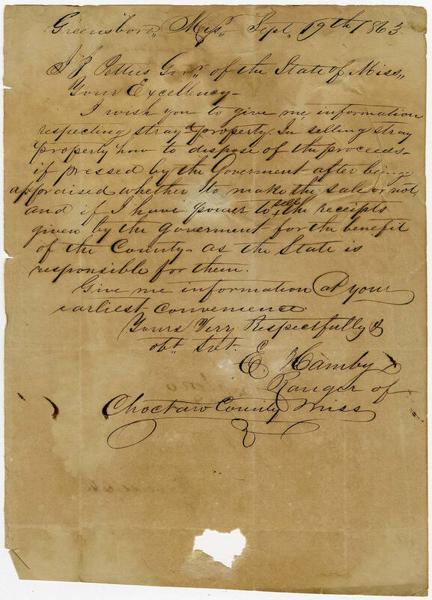 Greensboro, Missr. Sept. 19th 1863
J. J. Pettus, Gov. of the State of Miss,,
Your Excellency—
I wish you to give me information
respecting stray property. In selling stray
property how to dispose of the proceeds—
if pressed by the Goverment after being
appraised whether to make the sale or not
and if I have power to sell the receipts
given by the Goverment for the benefit
of the County— as the State is
responsible for them.
Give me information at your
earliest convenience
Yours Very Respectfully &
obt Svt.
E Hamby
Ranger of
Choctaw County Miss